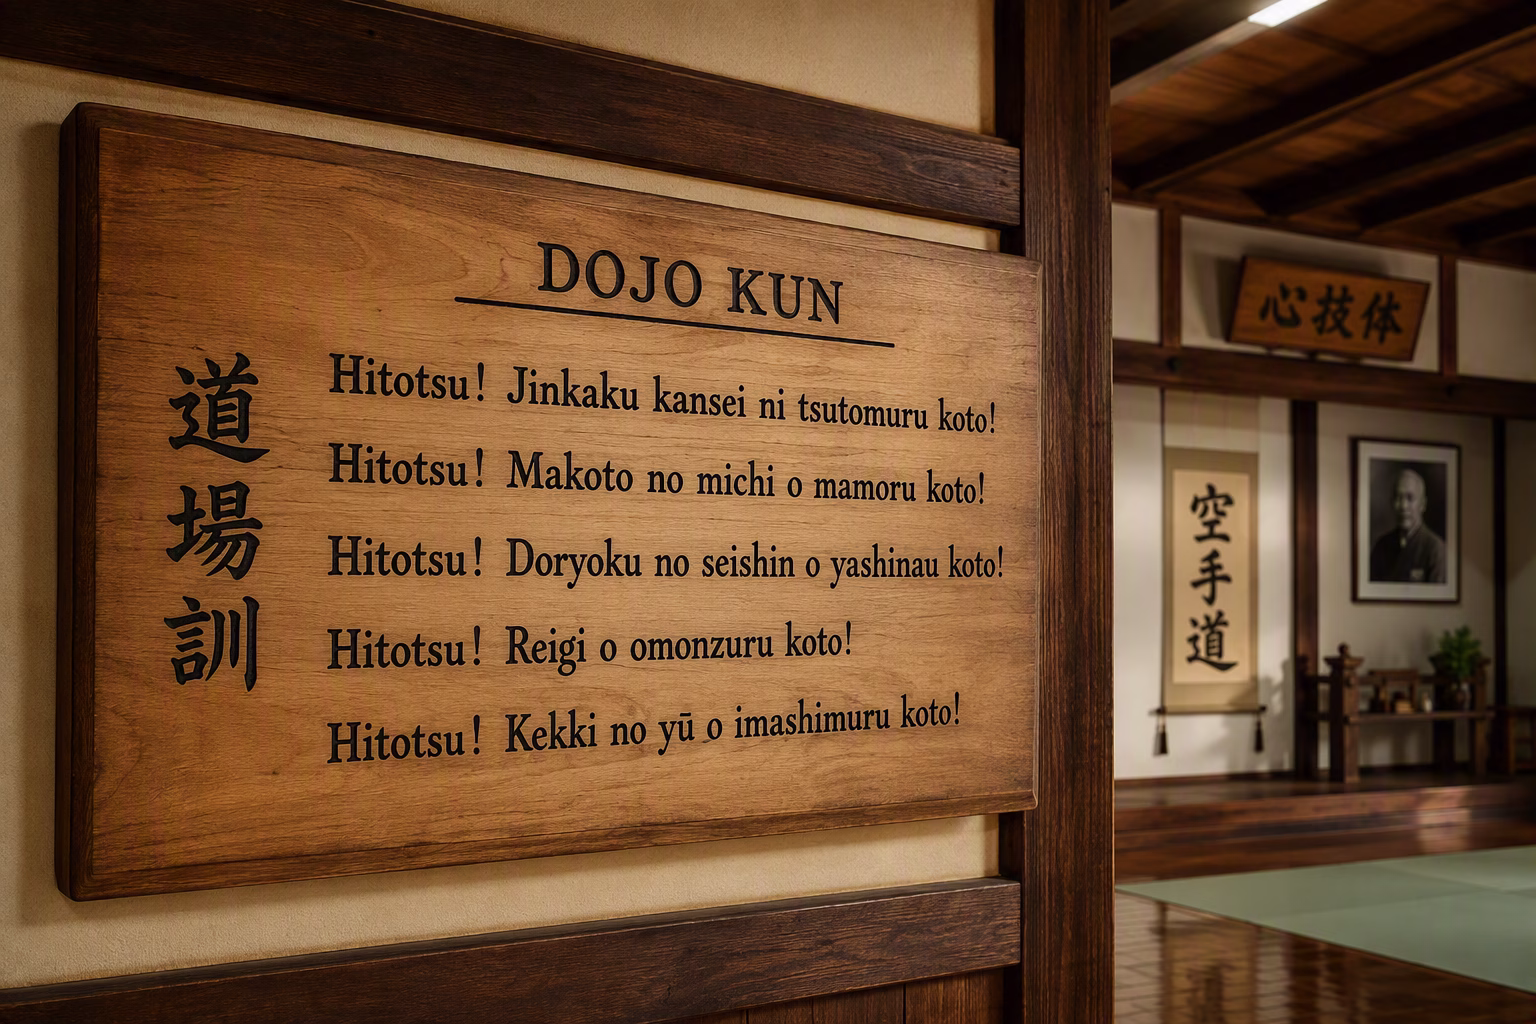 DOJO KUN
道場訓
Hitotsu! Jinkaku kansei ni tsutomuru koto!
Hitotsu! Makoto no michi o mamoru koto!
Hitotsu! Doryoku no seishin o yashinau koto!
Hitotsu! Reigi o omonzuru koto!
Hitotsu! Kekki no yū o imashimuru koto!
心技体
空手道